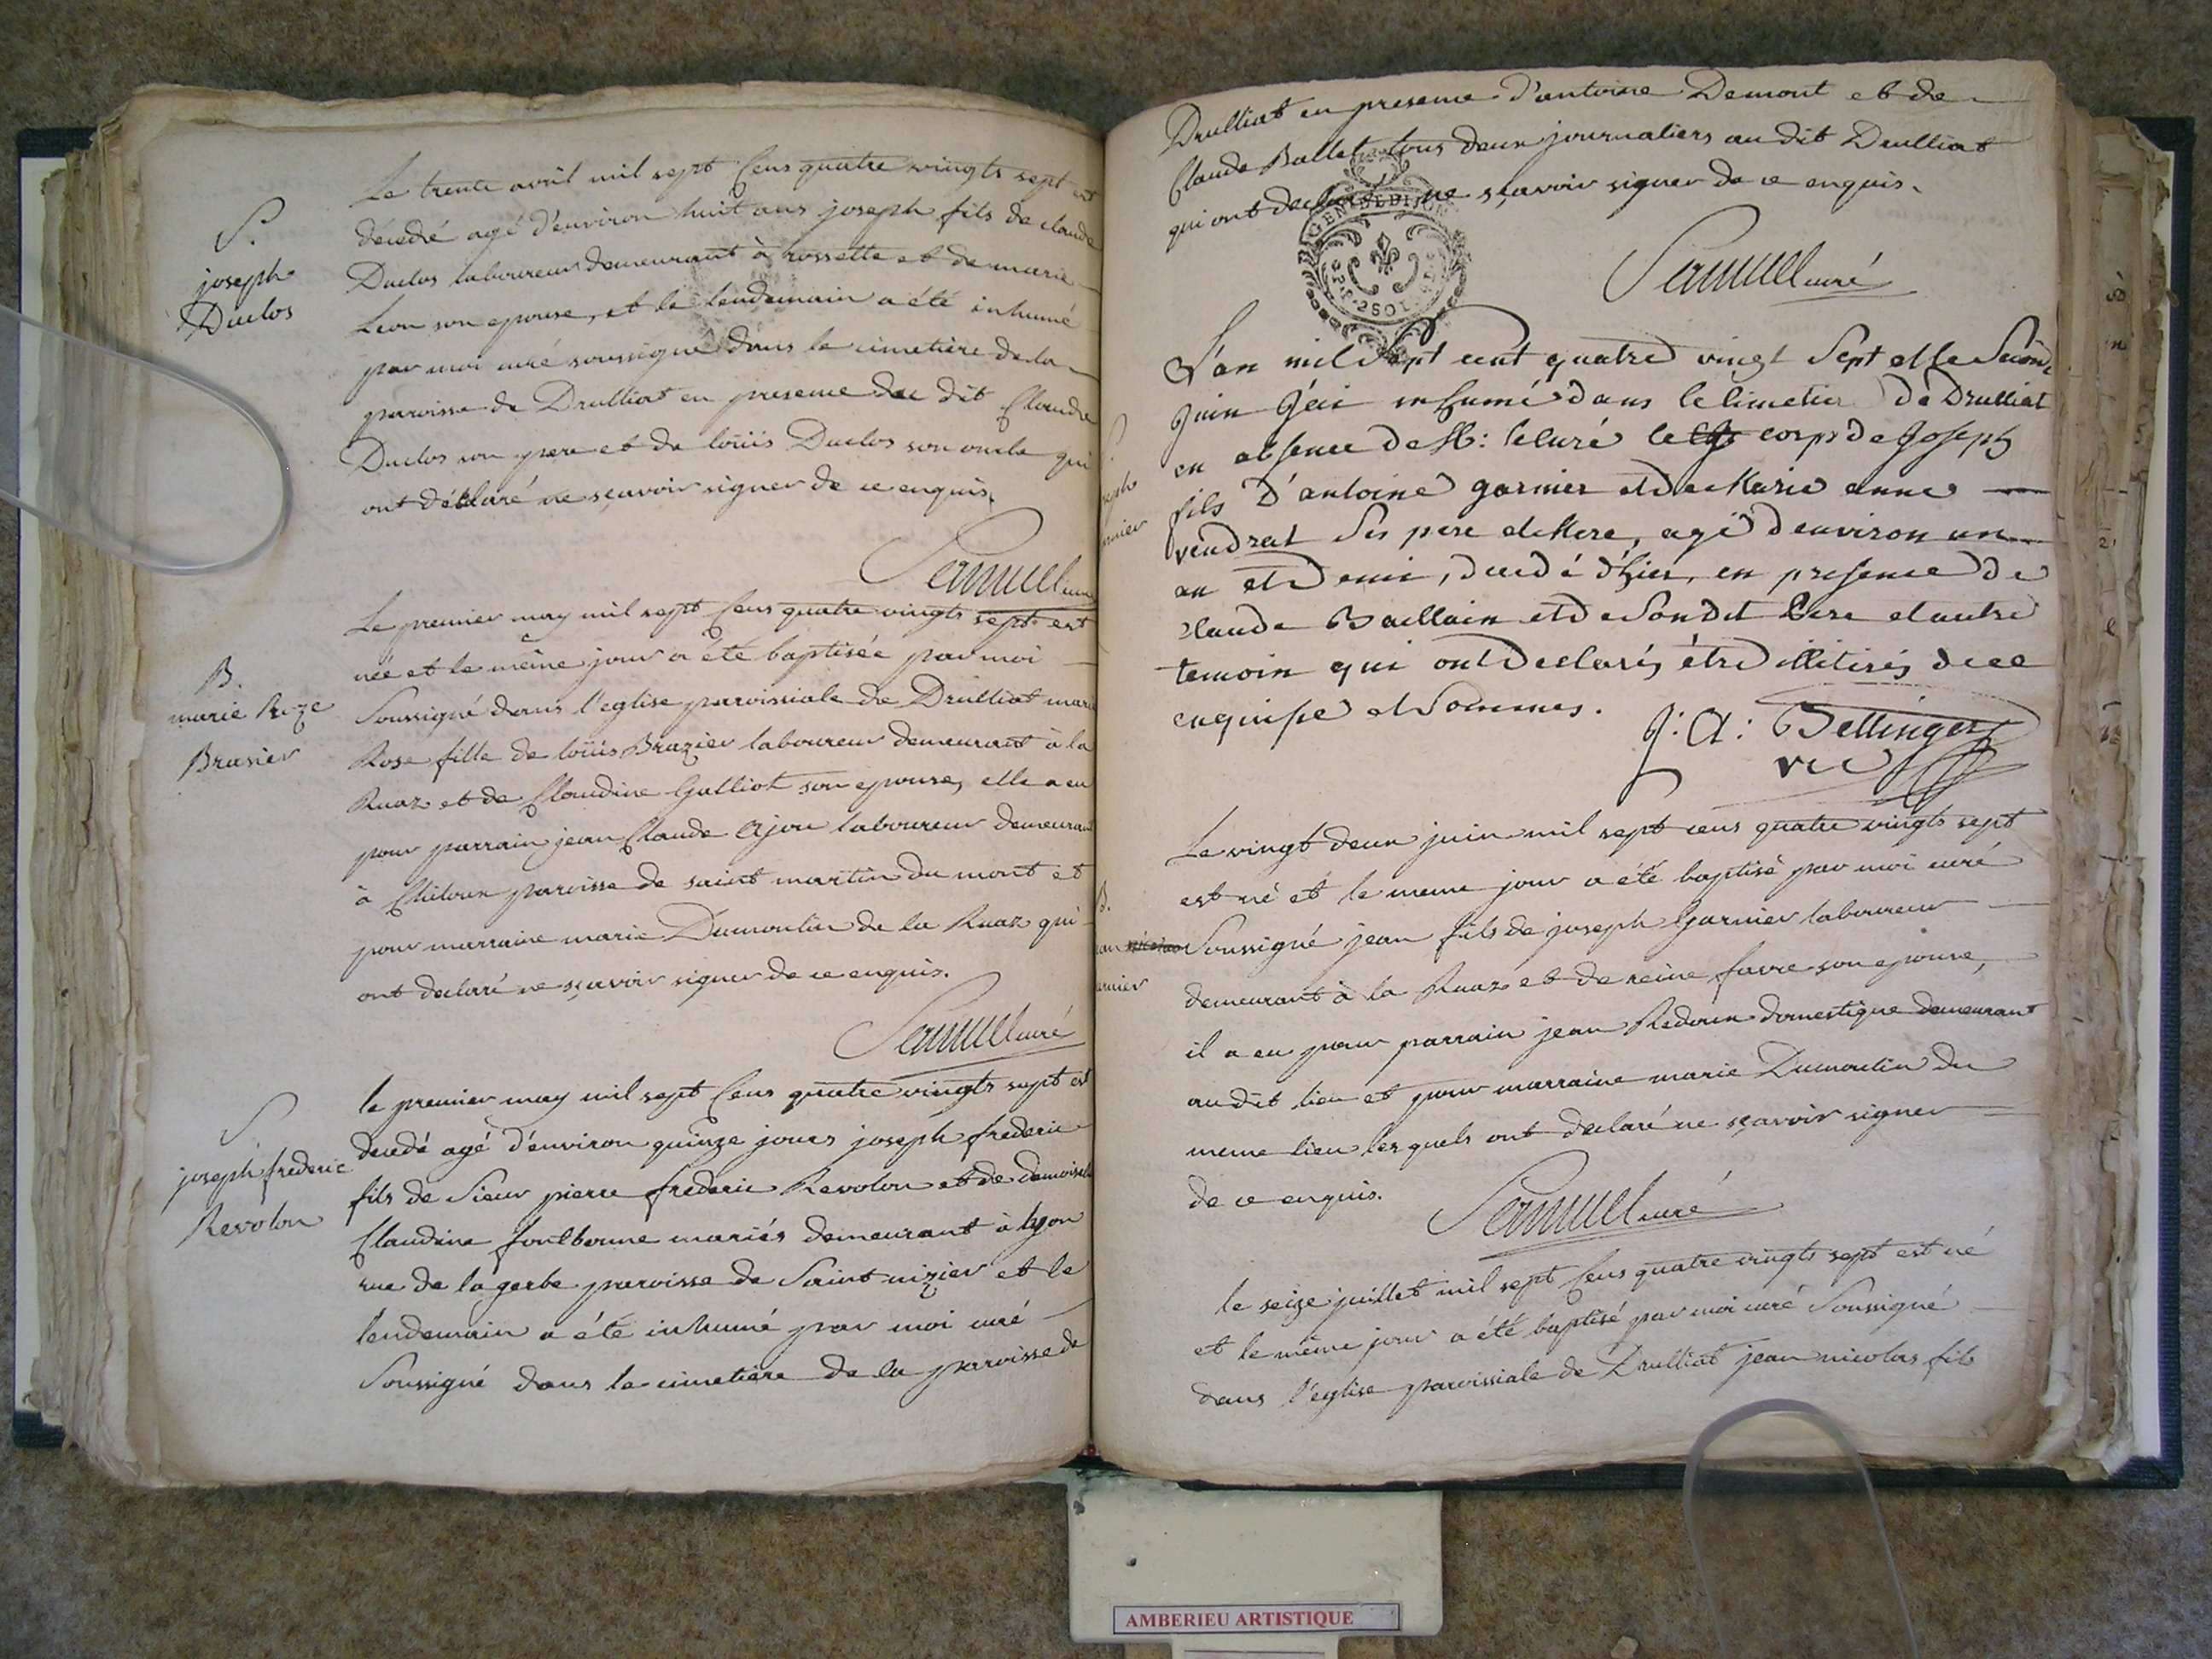 S.
joseph
Duclos
Le trente avril mil sept Cens quatre vingts sept est
décedé agé d'environ huit ans joseph fils de claude
Duclos laboureur demeurant à rossette et de marie
Leon son epouse, et le lendemain a été inhumé
par moi curé soussigné dans le cimetière de la
paroisse de Drulliat en presence du dit Claude
Duclos son pere et de loüis Duclos son oncle qui
ont déclaré ne sçavoir signer de ce enquis.
curé
B.
marie Roze
Brasier
Le premier may mil sept Cens quatre vingts sept est
née et le même jour a été baptisée par moi
Soussigné dans l'eglise paroissiale de Drulliat marie
Rose fille de loüis Brazier laboureur demeurant à la
Ruaz et de Claudine Galliot son epouse, elle a eu
pour parrain jean Claude Ajou laboureur demeurant
à paroisse de saint martin du mont et
pour marraine marie Dumoulin de la Ruaz qui
ont declaré ne sçavoir signer de ce enquis.
curé
S
joseph frederic
Revolon
le premier may mil sept Cens quatre vingts sept est
decedé agé d'environ quinze jours joseph frederic
fils de Sieur pierre frederic Revolon et de demoiselle
Claudine fontbonne mariés demeurant à lyon
rue de la gerbe paroisse de Saint nizier et le
lendemain a été inhumé par moi curé
Soussigné dans le cimetière de la paroisse de
Drulliat en presence d'antoine Demont et de
Claude Ballet tous deux journaliers au dit Drulliat
qui ont declaré ne sçavoir signer de ce enquis.
GEN. DE DIJON
2 SOLS
curé
L'an mil Sept cent quatre vingt Sept et le Second
Juin J'ai inhumé dans le Cimetier De Drulliat
en absence de M: le Curé le corps de Joseph
fils D'antoine garnier et de Marie anne
vendrat Ses pere et Mere, agé d'environ un
an et Demi, decedé d'hier, en presence de
Claude Baillain et de Son Dit Pere et autre
temoin qui ont Declarés être illitirés de ce
enquise et Sommes.
J: A: Bellinger
vic
B.
Le vingt deux juin mil sept cens quatre vingts sept
est né et le meme jour a été baptisé par moi curé
Soussigné jean fils de joseph Garnier laboureur
demeurant à la Ruaz et de reine favre son epouse,
il a eu pour parrain jean Redoux domestique demeurant
au dit lieu et pour marraine marie Dumoulin du
meme lieu lesquels ont declaré ne sçavoir signer
de ce enquis.
curé
le seize juillet mil sept Cens quatre vingts sept est né
et le même jour a été baptisé par moi curé Soussigné
dans l'eglise paroissiale de Drulliat jean nicolas fils
AMBERIEU ARTISTIQUE